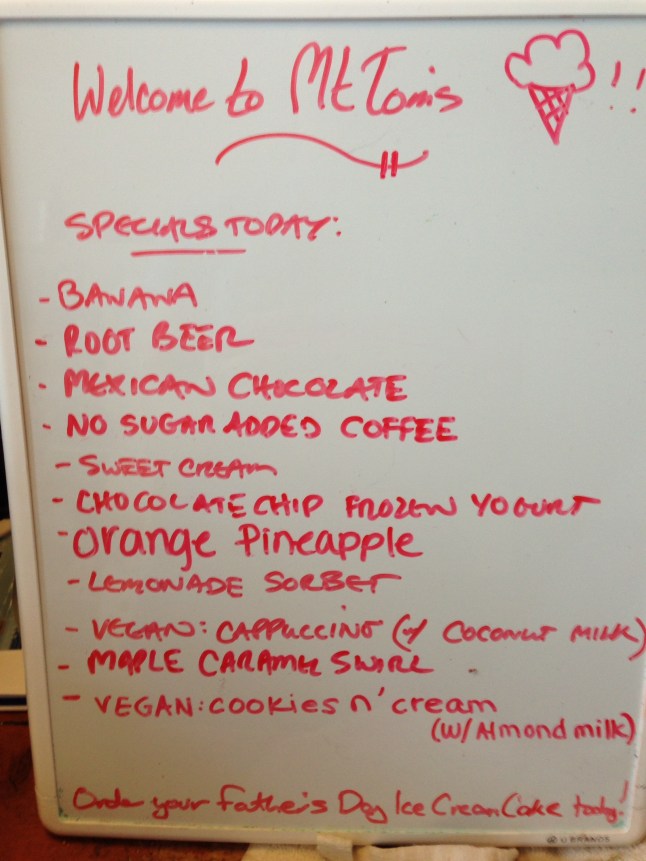 Welcome to Mt Tom's !!
SPECIALS TODAY:
- BANANA
- ROOT BEER
- MEXICAN CHOCOLATE
- NO SUGAR ADDED COFFEE
- SWEET CREAM
- CHOCOLATE CHIP FROZEN YOGURT
- orange Pineapple
- LEMONADE SORBET
- VEGAN: CAPPUCCINO (w/ COCONUT MILK)
- MAPLE CARAMEL SWIRL
- VEGAN: COOKIES n' cream
(w/ Almond milk)
Order your Father's Day Ice Cream Cake today!
U BRANDS